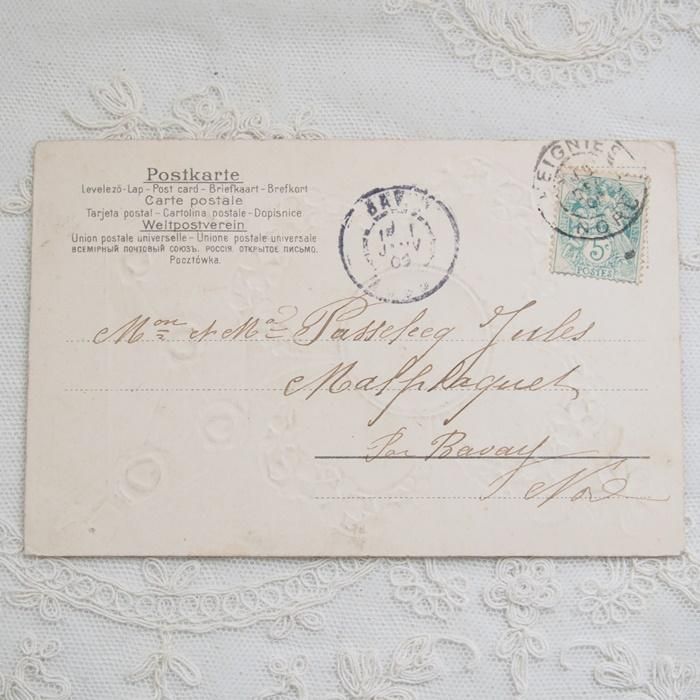 Postkarte
Levelező-Lap - Post card - Briefkaart - Brefkort
Carte postale
Tarjeta postal - Cartolina postale - Dopisnice
Weltpostverein
Union postale universelle - Unione postale universale
ВСЕМІРНЫЙ ПОЧТОВЫЙ СОЮЗЪ. РОССІЯ. ОТКРЫТОЕ ПИСЬМО.
Pocztówka.
JANV
EIGNIES
NORD
5c
POSTES
Mon et Ma Passelecq Jules
Malplaquet
Par Bavay
Nord